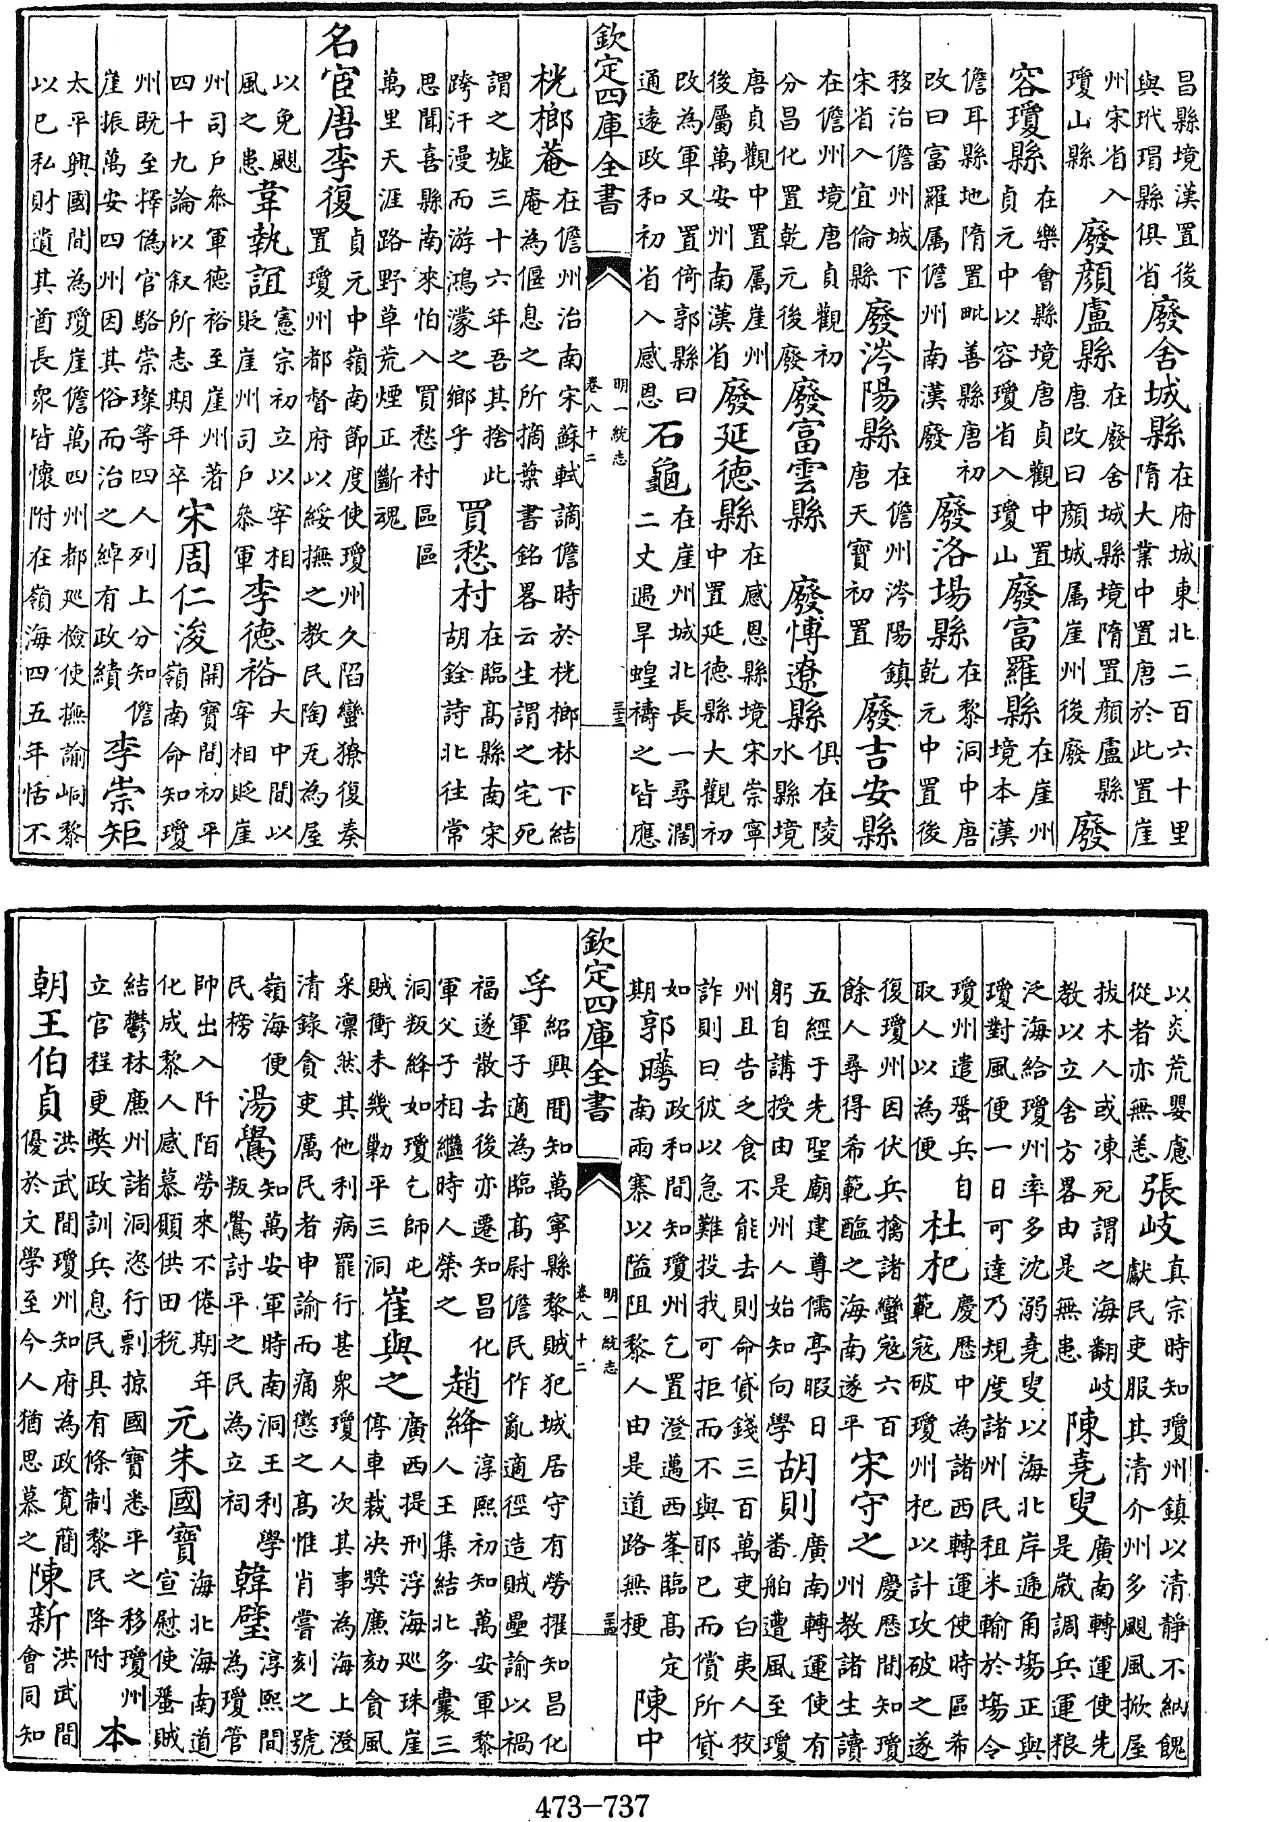 昌縣境漢置後與玳瑁縣俱省廢舍城縣在府城東北二百六十里隋大業中置唐於此置崖
州宋省入瓊山縣廢顔盧縣在廢舍城縣境隋置顔盧縣唐改曰顔城属崖州後廢廢
容瓊縣在樂會縣境唐貞觀中置貞元中以容瓊省入瓊山廢富羅縣在崖州境本漢
儋耳縣地隋置毗善縣唐初改曰富羅属儋州南漢廢廢洛場縣在黎洞中唐乾元中置後
移治儋州城下宋省入宜倫縣廢涔陽縣在儋州涔陽鎮唐天寶初置廢吉安縣
在儋州境唐貞觀初分昌化置乾元後廢廢富雲縣 廢愽遼縣俱在陵水縣境
唐貞觀中置属崖州後屬萬安州南漢省廢延德縣在感恩縣境宋崇寧中置延德縣大觀初
改為軍又置倚郭縣曰通遠政和初省入感恩石龜在崖州城北長一尋濶二丈遇旱蝗禱之皆應
欽定四庫全書 明一統志卷八十二 三十三
桄榔菴在儋州治南宋蘇軾謫儋時於桄榔林下結庵為偃息之所摘葉書銘畧云生謂之宅死
謂之墟三十六年吾其捨此跨汗漫而游鴻濛之鄉乎買愁村在臨髙縣南宋胡銓詩北往常
思聞喜縣南來怕入買愁村區區萬里天涯路野草荒煙正斷魂
名宦唐李復貞元中嶺南節度使瓊州久陷蠻獠復奏置瓊州都督府以綏撫之教民陶瓦為屋
以免颶風之患韋執誼憲宗初立以宰相貶崖州司户叅軍李德裕大中間以宰相貶崖
州司户叅軍德裕至崖州著四十九論以叙所志期年卒宋周仁浚開寶間初平嶺南命知瓊
州既至擇偽官駱崇璨等四人列上分知儋崖振萬安四州因其俗而治之綽有政績李崇矩
太平興國間為瓊崖儋萬四州都廵檢使撫諭峒黎以已私財遺其酋長衆皆懷附在嶺海四五年恬不
以炎荒嬰慮從者亦無恙張岐真宗時知瓊州鎮以清靜不納餽獻民吏服其清介州多颶風掀屋
拔木人或凍死謂之海翻岐教以立舍方畧由是無患陳堯叟廣南轉運使先是歲調兵運粮
泛海給瓊州率多沈溺堯叟以海北岸逓角塲正與瓊對風便一日可達乃規度諸州民租米輸於塲令
瓊州遣蜑兵自取人以為便杜杞慶歷中為諸西轉運使時區希範宼破瓊州杞以計攻破之遂
復瓊州因伏兵擒諸蠻宼六百餘人尋得希範醢之海南遂平宋守之慶歷間知瓊州教諸生讀
五經于先聖廟建尊儒亭暇日躬自講授由是州人始知向學胡則廣南轉運使有番舶遭風至瓊
州且告乏食不能去則命貸錢三百萬吏白夷人狡詐則曰彼以急難投我可拒而不與耶已而償所貸
如期郭曄政和間知瓊州乞置澄邁西峯臨髙定南兩寨以隘阻黎人由是道路無梗陳中
欽定四庫全書 明一統志卷八十二 三十四
孚紹興間知萬寧縣黎賊犯城居守有勞擢知昌化軍子適為臨髙尉儋民作亂適徑造賊壘諭以禍
福遂散去後亦遷知昌化軍父子相繼時人榮之趙绛淳熙初知萬安軍黎人王集結北多囊三
洞叛絳如瓊乞師屯賊衝未幾勦平三洞崔與之廣西提刑浮海廵珠崖停車裁決奬廉劾貪風
采凛然其他利病罷行甚衆瓊人次其事為海上澄清錄貪吏厲民者申諭而痛懲之髙惟肖嘗刻之號
嶺海便民榜湯鷽知萬安軍時南洞王利學叛鷽討平之民為立祠韓璧淳熙間為瓊管
帥出入阡陌勞來不倦期年化成黎人感慕願供田稅元朱國寶海北海南道宣慰使蜑賊
結鬱林廉州諸洞恣行剽掠國寶悉平之移瓊州立官程更弊政訓兵息民具有條制黎民降附本
朝王伯貞洪武間瓊州知府為政寛簡優於文學至今人猶思慕之陳新洪武間會同知
473-737